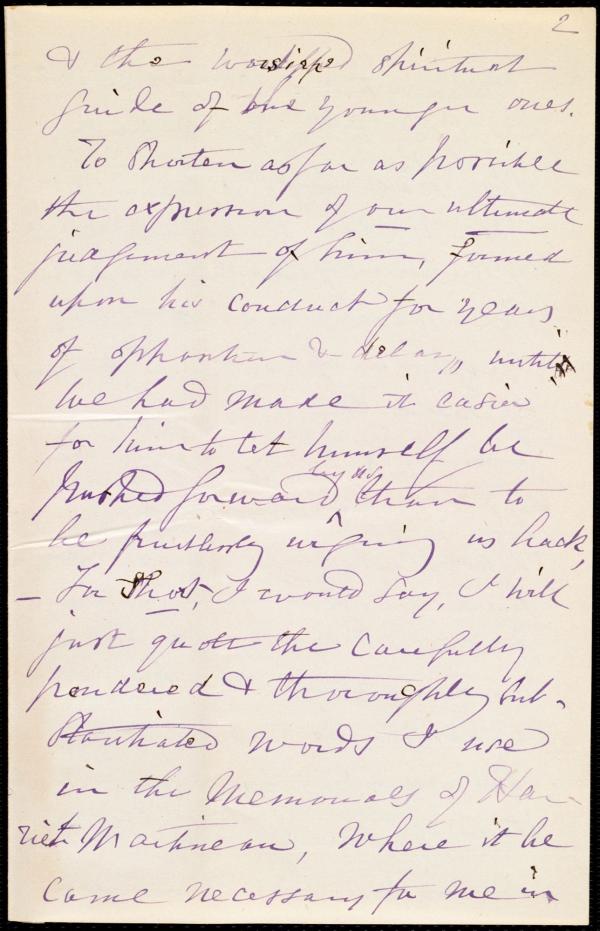 2
& the worshipped spiritual
guide of the younger ones.
To shorten as far as possible
the expression of our ultimate
judgement of him, formed
upon his conduct for years
of opposition & delay, until
we had made it easier
for him to let himself be
by us
pushed forward than to
be fruitlessly urging us back,
— For that, I would say, I will
just quote the carefully
pondered & thoroughly sub-
stantiated words I use
in the Memorials of Har-
riet Martineau, where it be
came necessary for me in